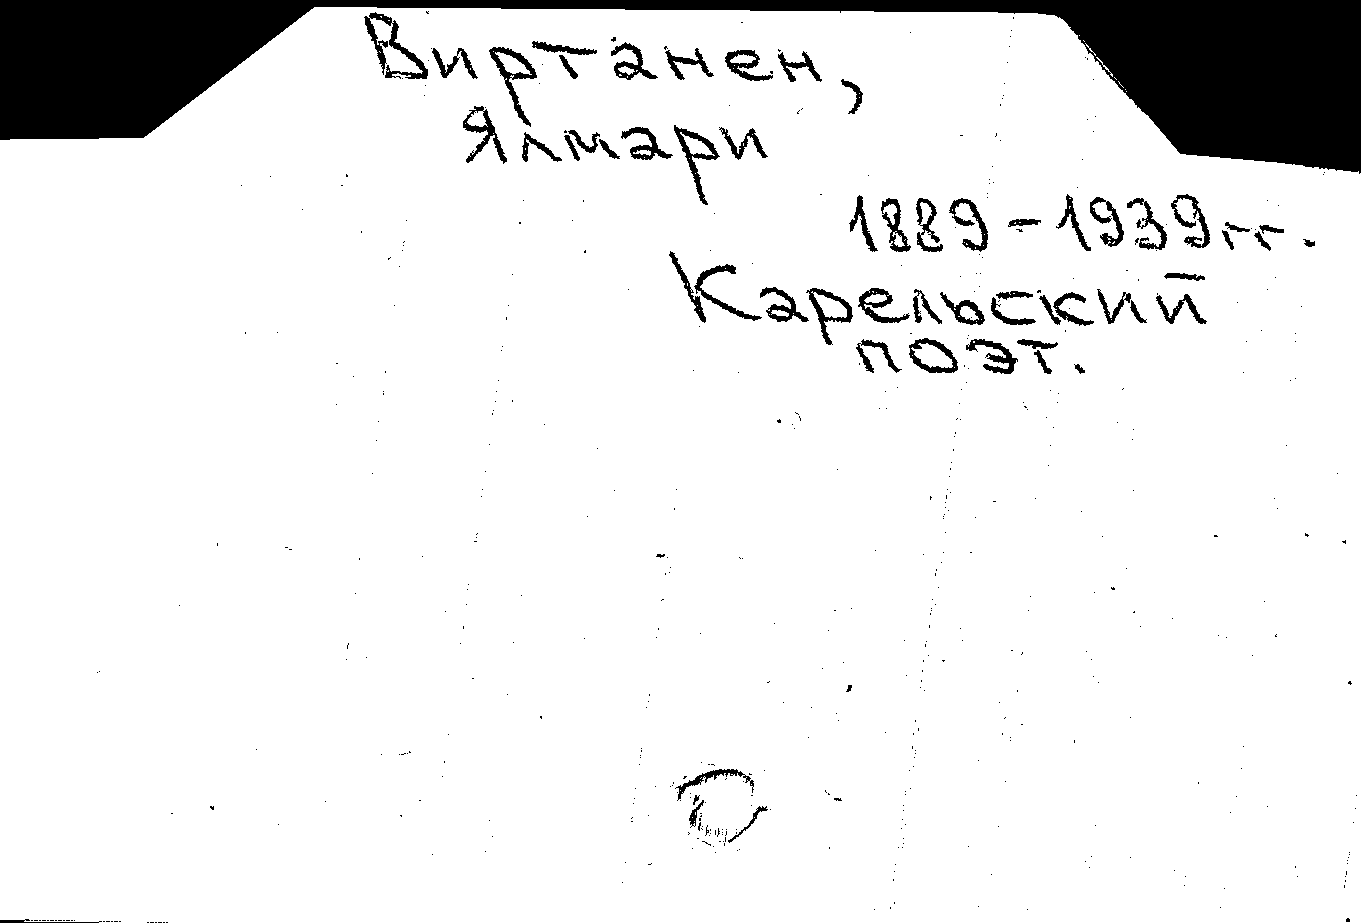 Виртанен,
Ялмари
1889-1939гг.
Карельский
поэт.